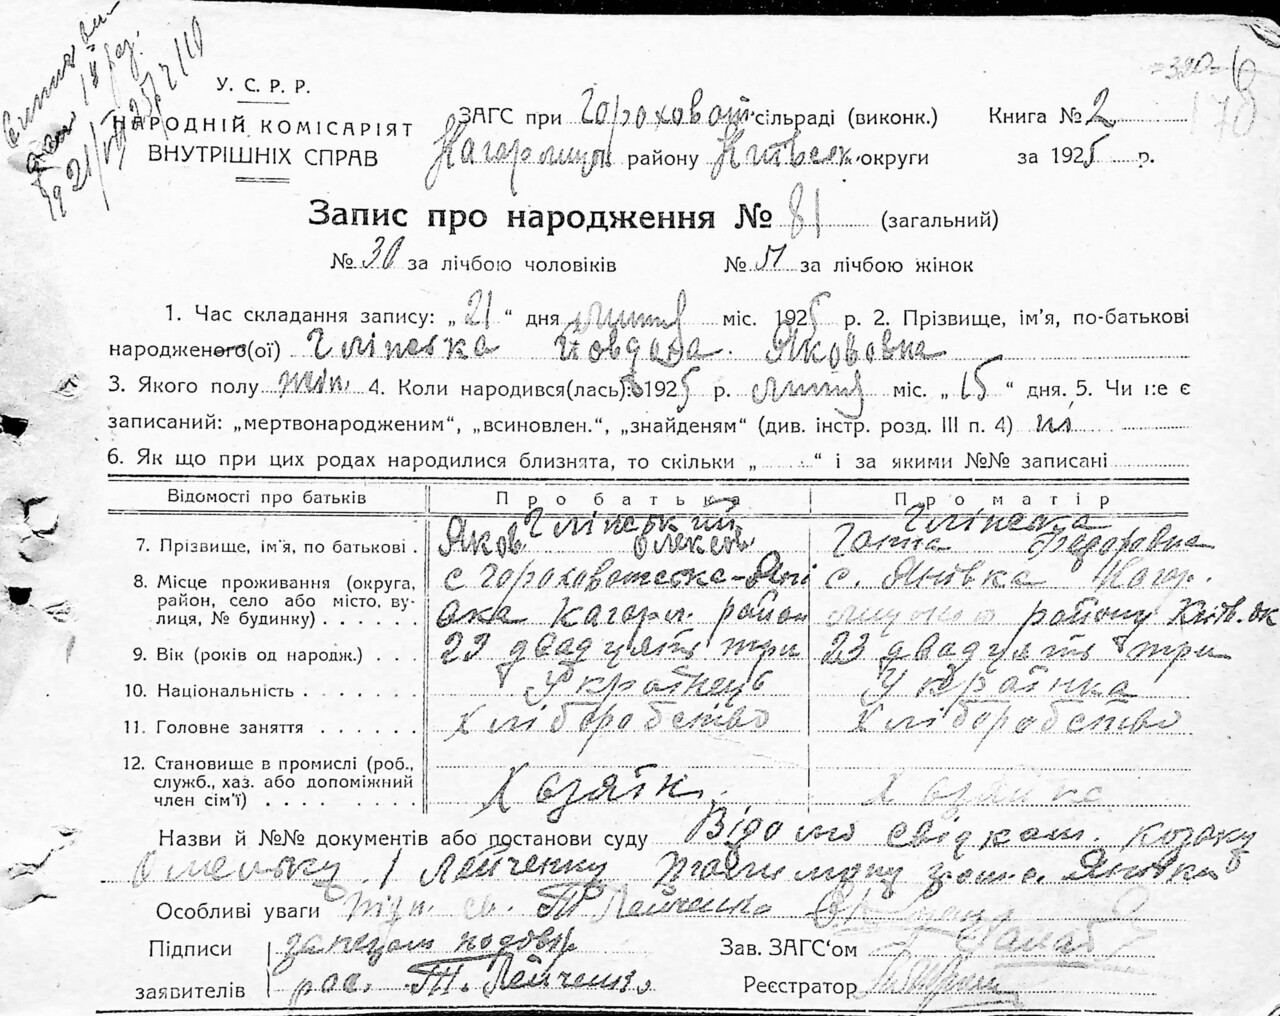 У. С. Р. Р.
НАРОДНІЙ КОМІСАРІЯТ
ВНУТРІШНІХ СПРАВ
ЗАГС при Гороховат. сільраді (виконк.)
району округи
Книга № 2
за 1925 р.
178
Запис про народження № 81 (загальний)
№ 30 за лічбою чоловіків № 51 за лічбою жінок
1. Час складання запису: „ 21 “ дня лютня міс. 1925 р. 2. Прізвище, ім'я, по-батькові
народженого(ої) Глінська Йовдоха Яковівна
3. Якого полу жін. 4. Коли народився(лась): 1925 р. лютня міс. „ 15 “ дня. 5. Чи не є
записаний: „мертвонародженим“, „всиновлен.“, „знайденям“ (див. інстр. розд. III п. 4) ні
6. Як що при цих родах народилися близнята, то скільки „ “ і за якими №№ записані
Відомості про батьків Про батька Про матір
7. Прізвище, ім'я, по батькові . Глінський Яков Олексов Глінська Ганна Федоровна
8. Місце проживання (округа, район, село або місто, вулиця, № будинку) . . . . . . с Гороховатська-Яні вка Кагарл. район с. Янівка Кагар. району Київ. ок
9. Вік (років од народж.) . . . 23 двадцять три 23 двадцять три
10. Національність . . . . . . Українець Українка
11. Головне заняття . . . . . . Хліборобство Хліборобство
12. Становище в промислі (роб., служб., хаз. або допоміжний член сім'ї) . . . . . . Хазяїн Хазяйка
Назви й №№ документів або постанови суду Відомо свідкам. козаку
Омельку Лейченку з с. Янівка
Особливі уваги Т Лейченко
Підписи
заявителів
рос. Т. Лейченко
Зав. ЗАГС'ом
Реєстратор